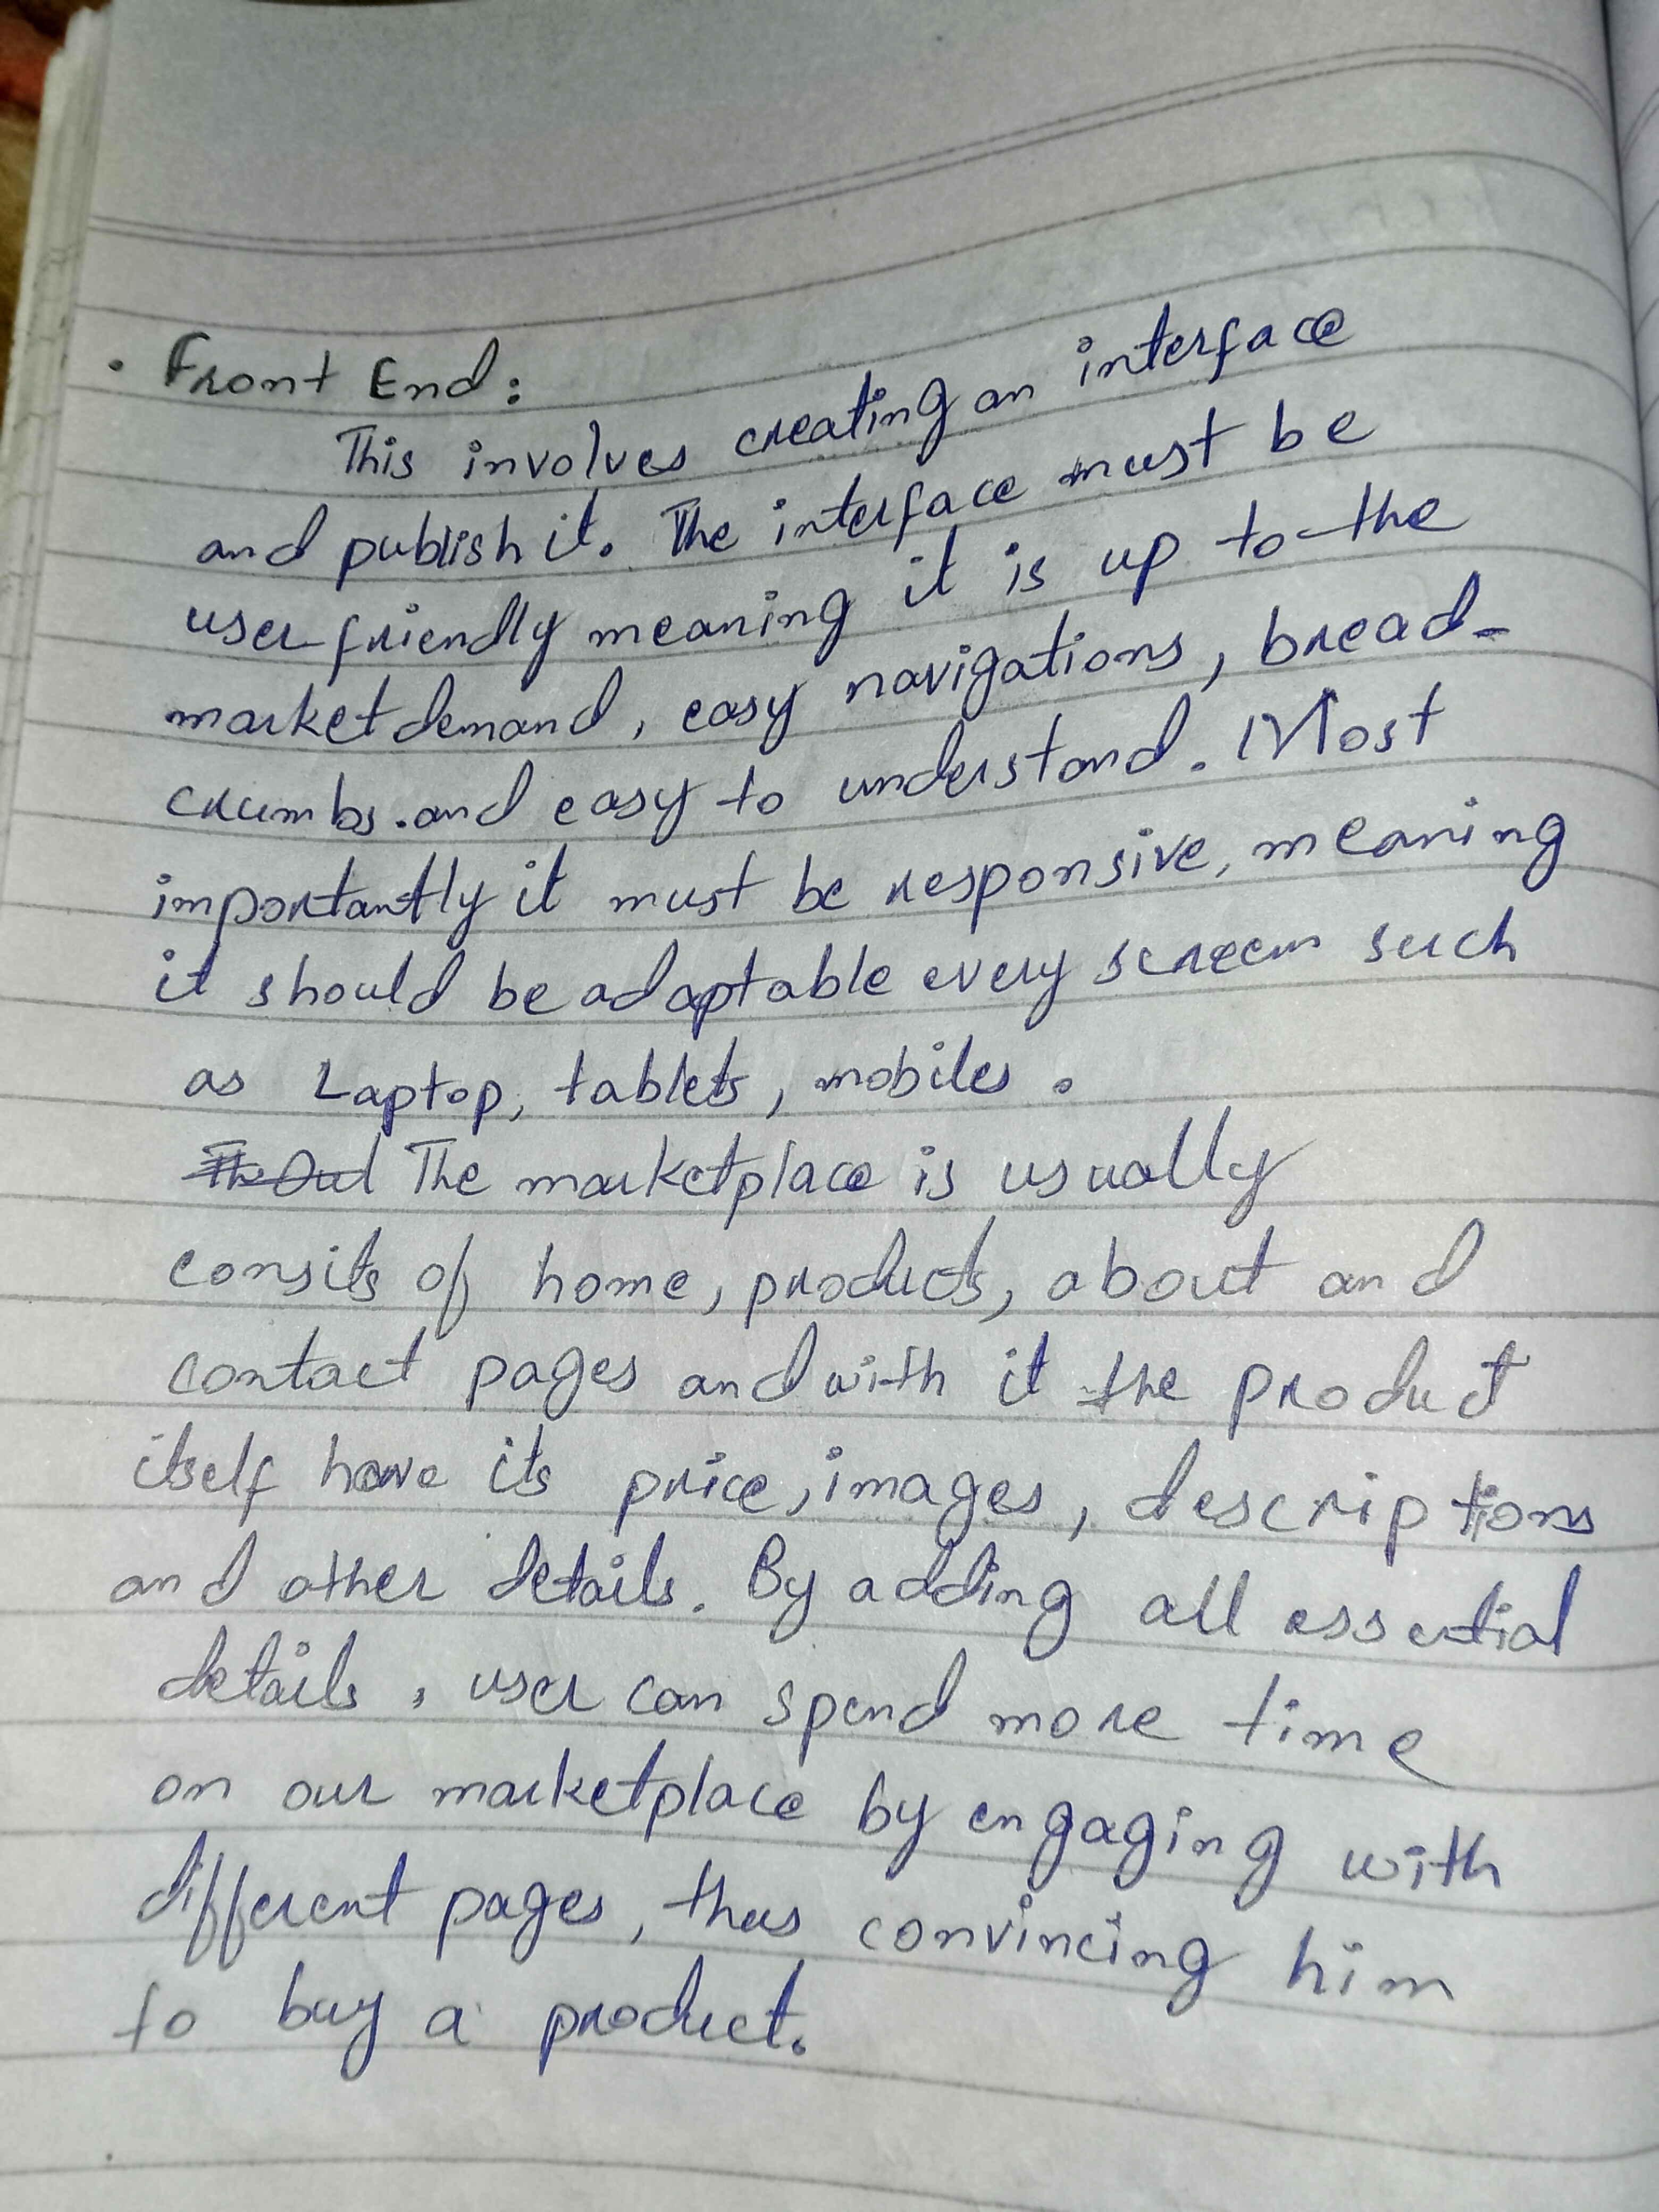 • Front End:
This involves creating an interface
and publish it. The interface must be
user friendly meaning it is up to the
market demand, easy navigations, bread-
crumbs. and easy to understand. Most
importantly it must be responsive, meaning
it should be adaptable every screen such
as Laptop, tablets, mobiles.
The marketplace is usually
consits of home, products, about and
contact pages and with it the product
itself have its price, images, descriptions
and other details. By adding all essential
details, user can spend more time
on our marketplace by engaging with
different pages, thus convincing him
to buy a product.